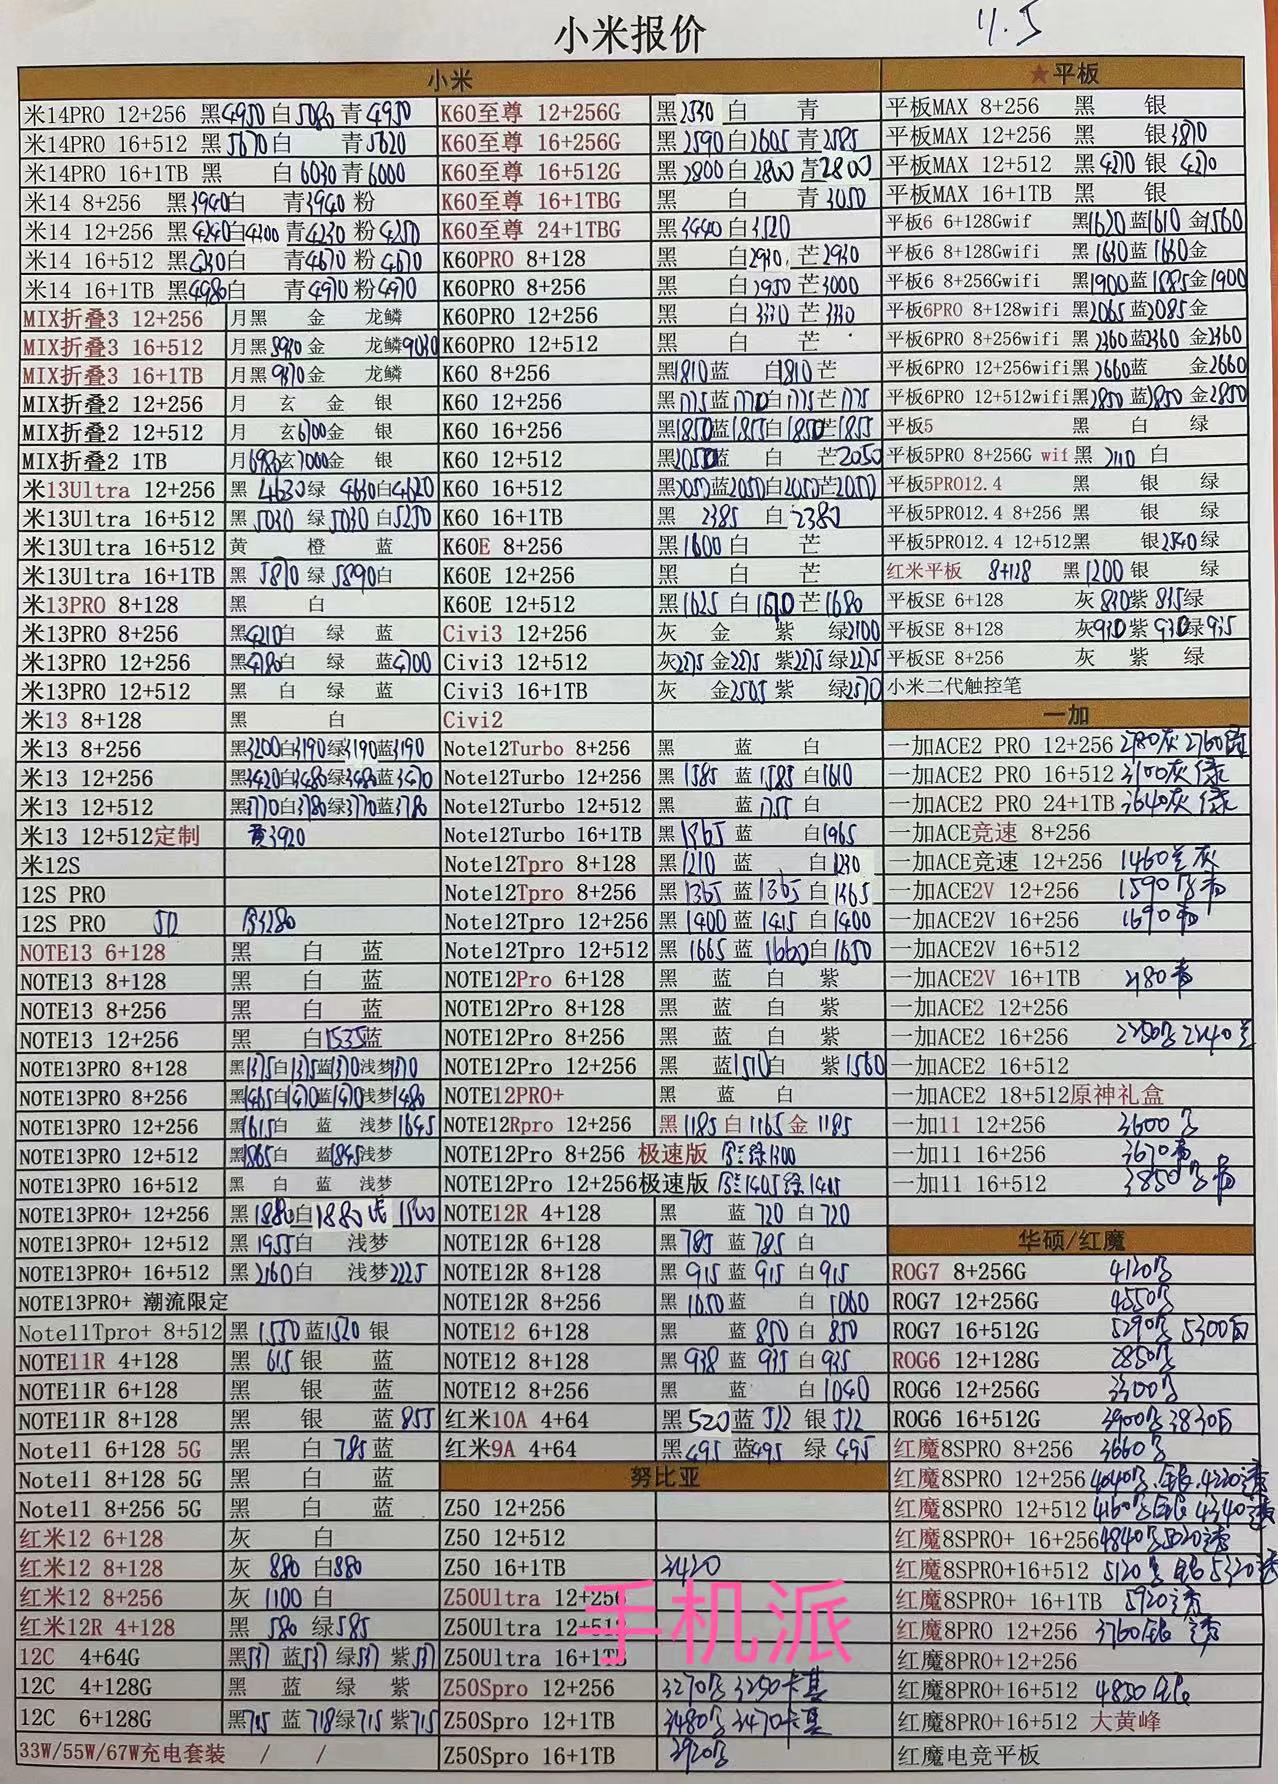 小米报价
11.5
小米
米14PRO 12+256 黑4950 白5080 青4950
米14PRO 16+512 黑5670 白 青5620
米14PRO 16+1TB 黑 白6030 青6000
米14 8+256 黑3940 白 青3940 粉
米14 12+256 黑4240 白4200 青4230 粉4250
米14 16+512 黑 白 青4670 粉4670
米14 16+1TB 黑4980 白 青4970 粉4970
MIX折叠3 12+256 月黑 金 龙鳞
MIX折叠3 16+512 月黑8930 金 龙鳞9030
MIX折叠3 16+1TB 月黑9370 金 龙鳞
MIX折叠2 12+256 月 玄 金 银
MIX折叠2 12+512 月 玄6700 金 银
MIX折叠2 1TB 月6980 玄7000 金 银
米13Ultra 12+256 黑4630 绿4660 白4620
米13Ultra 16+512 黑5030 绿5030 白5250
米13Ultra 16+512 黄 橙 蓝
米13Ultra 16+1TB 黑5870 绿5890 白
米13PRO 8+128 黑 白
米13PRO 8+256 黑4210 白 绿 蓝
米13PRO 12+256 黑4780 白 绿 蓝4700
米13PRO 12+512 黑 白 绿 蓝
米13 8+128 黑 白
米13 8+256 黑3200 白3190 绿3190 蓝3190
米13 12+256 黑3420 白3480 绿3480 蓝3470
米13 12+512 黑3770 白3780 绿3770 蓝3780
米13 12+512定制 黄3920
米12S
12S PRO
12S PRO
NOTE13 6+128 黑 白 蓝
NOTE13 8+128 黑 白 蓝
NOTE13 8+256 黑 白 蓝
NOTE13 12+256 黑 白1535 蓝
NOTE13PRO 8+128 黑1375 白1375 蓝1370 浅梦1370
NOTE13PRO 8+256 黑1465 白1470 蓝1470 浅梦1480
NOTE13PRO 12+256 黑1615 白 蓝 浅梦1645
NOTE13PRO 12+512 黑1865 白 蓝1845 浅梦
NOTE13PRO 16+512 黑 白 蓝 浅梦
NOTE13PRO+ 12+256 黑1880 白1880
NOTE13PRO+ 12+512 黑1955 白 浅梦
NOTE13PRO+ 16+512 黑2160 白 浅梦2225
NOTE13PRO+ 潮流限定
Note11Tpro+ 8+512 黑1550 蓝1520 银
NOTE11R 4+128 黑615 银 蓝
NOTE11R 6+128 黑 银 蓝
NOTE11R 8+128 黑 银 蓝855
Note11 6+128 5G 黑 白785 蓝
Note11 8+128 5G 黑 白 蓝
Note11 8+256 5G 黑 白 蓝
红米12 6+128 灰 白
红米12 8+128 灰880 白880
红米12 8+256 灰1100 白
红米12R 4+128 黑580 绿585
12C 4+64G 黑537 蓝537 绿537 紫537
12C 4+128G 黑 蓝 绿 紫
12C 6+128G 黑715 蓝718 绿715 紫715
33W/55W/67W充电套装 / /
K60至尊 12+256G 黑2530 白 青
K60至尊 16+256G 黑2590 白2605 青2585
K60至尊 16+512G 黑2800 白2800 青2800
K60至尊 16+1TBG 黑 白 青3050
K60至尊 24+1TBG 黑3440 白3520
K60PRO 8+128 黑 白2930 芒2930
K60PRO 8+256 黑 白2950 芒3000
K60PRO 12+256 黑 白3330 芒3330
K60PRO 12+512 黑 白 芒
K60 8+256 黑1810 蓝 白1810 芒
K60 12+256 黑1775 蓝1770 白1775 芒1775
K60 16+256 黑1850 蓝1855 白1850 芒1855
K60 12+512 黑2050 蓝 白 芒2050
K60 16+512 黑2050 蓝2050 白2050 芒2050
K60 16+1TB 黑2385 白2380
K60E 8+256 黑1600 白 芒
K60E 12+256 黑 白 芒
K60E 12+512 黑1625 白1670 芒1680
Civi3 12+256 灰 金 紫 绿2100
Civi3 12+512 灰2275 金2275 紫2275 绿2275
Civi3 16+1TB 灰 金2505 紫 绿2570
Civi2
Note12Turbo 8+256 黑 蓝 白
Note12Turbo 12+256 黑1585 蓝1585 白1610
Note12Turbo 12+512 黑 蓝1755 白
Note12Turbo 16+1TB 黑1965 蓝 白1965
Note12Tpro 8+128 黑1210 蓝 白1230
Note12Tpro 8+256 黑1365 蓝1365 白1365
Note12Tpro 12+256 黑1400 蓝1415 白1400
Note12Tpro 12+512 黑1665 蓝1660 白1650
NOTE12Pro 6+128 黑 蓝 白 紫
NOTE12Pro 8+128 黑 蓝 白 紫
NOTE12Pro 8+256 黑 蓝 白 紫
NOTE12Pro 12+256 黑 蓝1510 白 紫1560
NOTE12PRO+ 黑 蓝 白
NOTE12Rpro 12+256 黑1185 白1165 金1185
NOTE12Pro 8+256 极速版
NOTE12Pro 12+256极速版
NOTE12R 4+128 黑 蓝720 白720
NOTE12R 6+128 黑785 蓝785 白
NOTE12R 8+128 黑915 蓝915 白915
NOTE12R 8+256 黑1050 蓝 白1060
NOTE12 6+128 黑 蓝850 白850
NOTE12 8+128 黑938 蓝935 白935
NOTE12 8+256 黑 蓝 白1040
红米10A 4+64 黑520 蓝522 银522
红米9A 4+64 黑495 蓝495 绿495
努比亚
Z50 12+256
Z50 12+512
Z50 16+1TB 3420
Z50Ultra 12+256
Z50Ultra 12+512
Z50Ultra 16+1TB
Z50Spro 12+256 3270 3250
Z50Spro 12+1TB 3480 3470
Z50Spro 16+1TB 3920
★平板
平板MAX 8+256 黑 银
平板MAX 12+256 黑 银3870
平板MAX 12+512 黑4270 银4270
平板MAX 16+1TB 黑 银
平板6 6+128Gwif 黑1620 蓝1610 金1560
平板6 8+128Gwifi 黑1630 蓝1630 金
平板6 8+256Gwifi 黑1900 蓝1885 金1900
平板6PRO 8+128wifi 黑2065 蓝2085 金
平板6PRO 8+256wifi 黑2360 蓝2360 金2360
平板6PRO 12+256wifi 黑2660 蓝 金2660
平板6PRO 12+512wifi 黑2850 蓝2850 金2850
平板5 黑 白 绿
平板5PRO 8+256G wif 黑2110 白
平板5PRO12.4 黑 银 绿
平板5PRO12.4 8+256 黑 银 绿
平板5PRO12.4 12+512 黑 银2540 绿
红米平板 8+128 黑1200 银 绿
平板SE 6+128 灰830 紫835 绿
平板SE 8+128 灰930 紫930 绿935
平板SE 8+256 灰 紫 绿
小米二代触控笔
一加
一加ACE2 PRO 12+256 2780灰 2760
一加ACE2 PRO 16+512 3100灰 绿
一加ACE2 PRO 24+1TB 3640灰 绿
一加ACE竞速 8+256
一加ACE竞速 12+256 1460 灰
一加ACE2V 12+256 1590
一加ACE2V 16+256 1690
一加ACE2V 16+512
一加ACE2V 16+1TB 2180
一加ACE2 12+256
一加ACE2 16+256 2250 2240
一加ACE2 16+512
一加ACE2 18+512原神礼盒
一加11 12+256 3600
一加11 16+256 3670
一加11 16+512 3850
华硕/红魔
ROG7 8+256G 4120
ROG7 12+256G 4550
ROG7 16+512G 5290 5300白
ROG6 12+128G 2850
ROG6 12+256G 3300
ROG6 16+512G 3900 3830白
红魔8SPRO 8+256 3660
红魔8SPRO 12+256 4040 4220透
红魔8SPRO 12+512 4160 4340透
红魔8SPRO+ 16+256 4840 5020透
红魔8SPRO+16+512 5120 5320透
红魔8SPRO+ 16+1TB 5920透
红魔8PRO 12+256 3760 透
红魔8PRO+12+256
红魔8PRO+16+512 4850
红魔8PRO+16+512 大黄蜂
红魔电竞平板
手机派